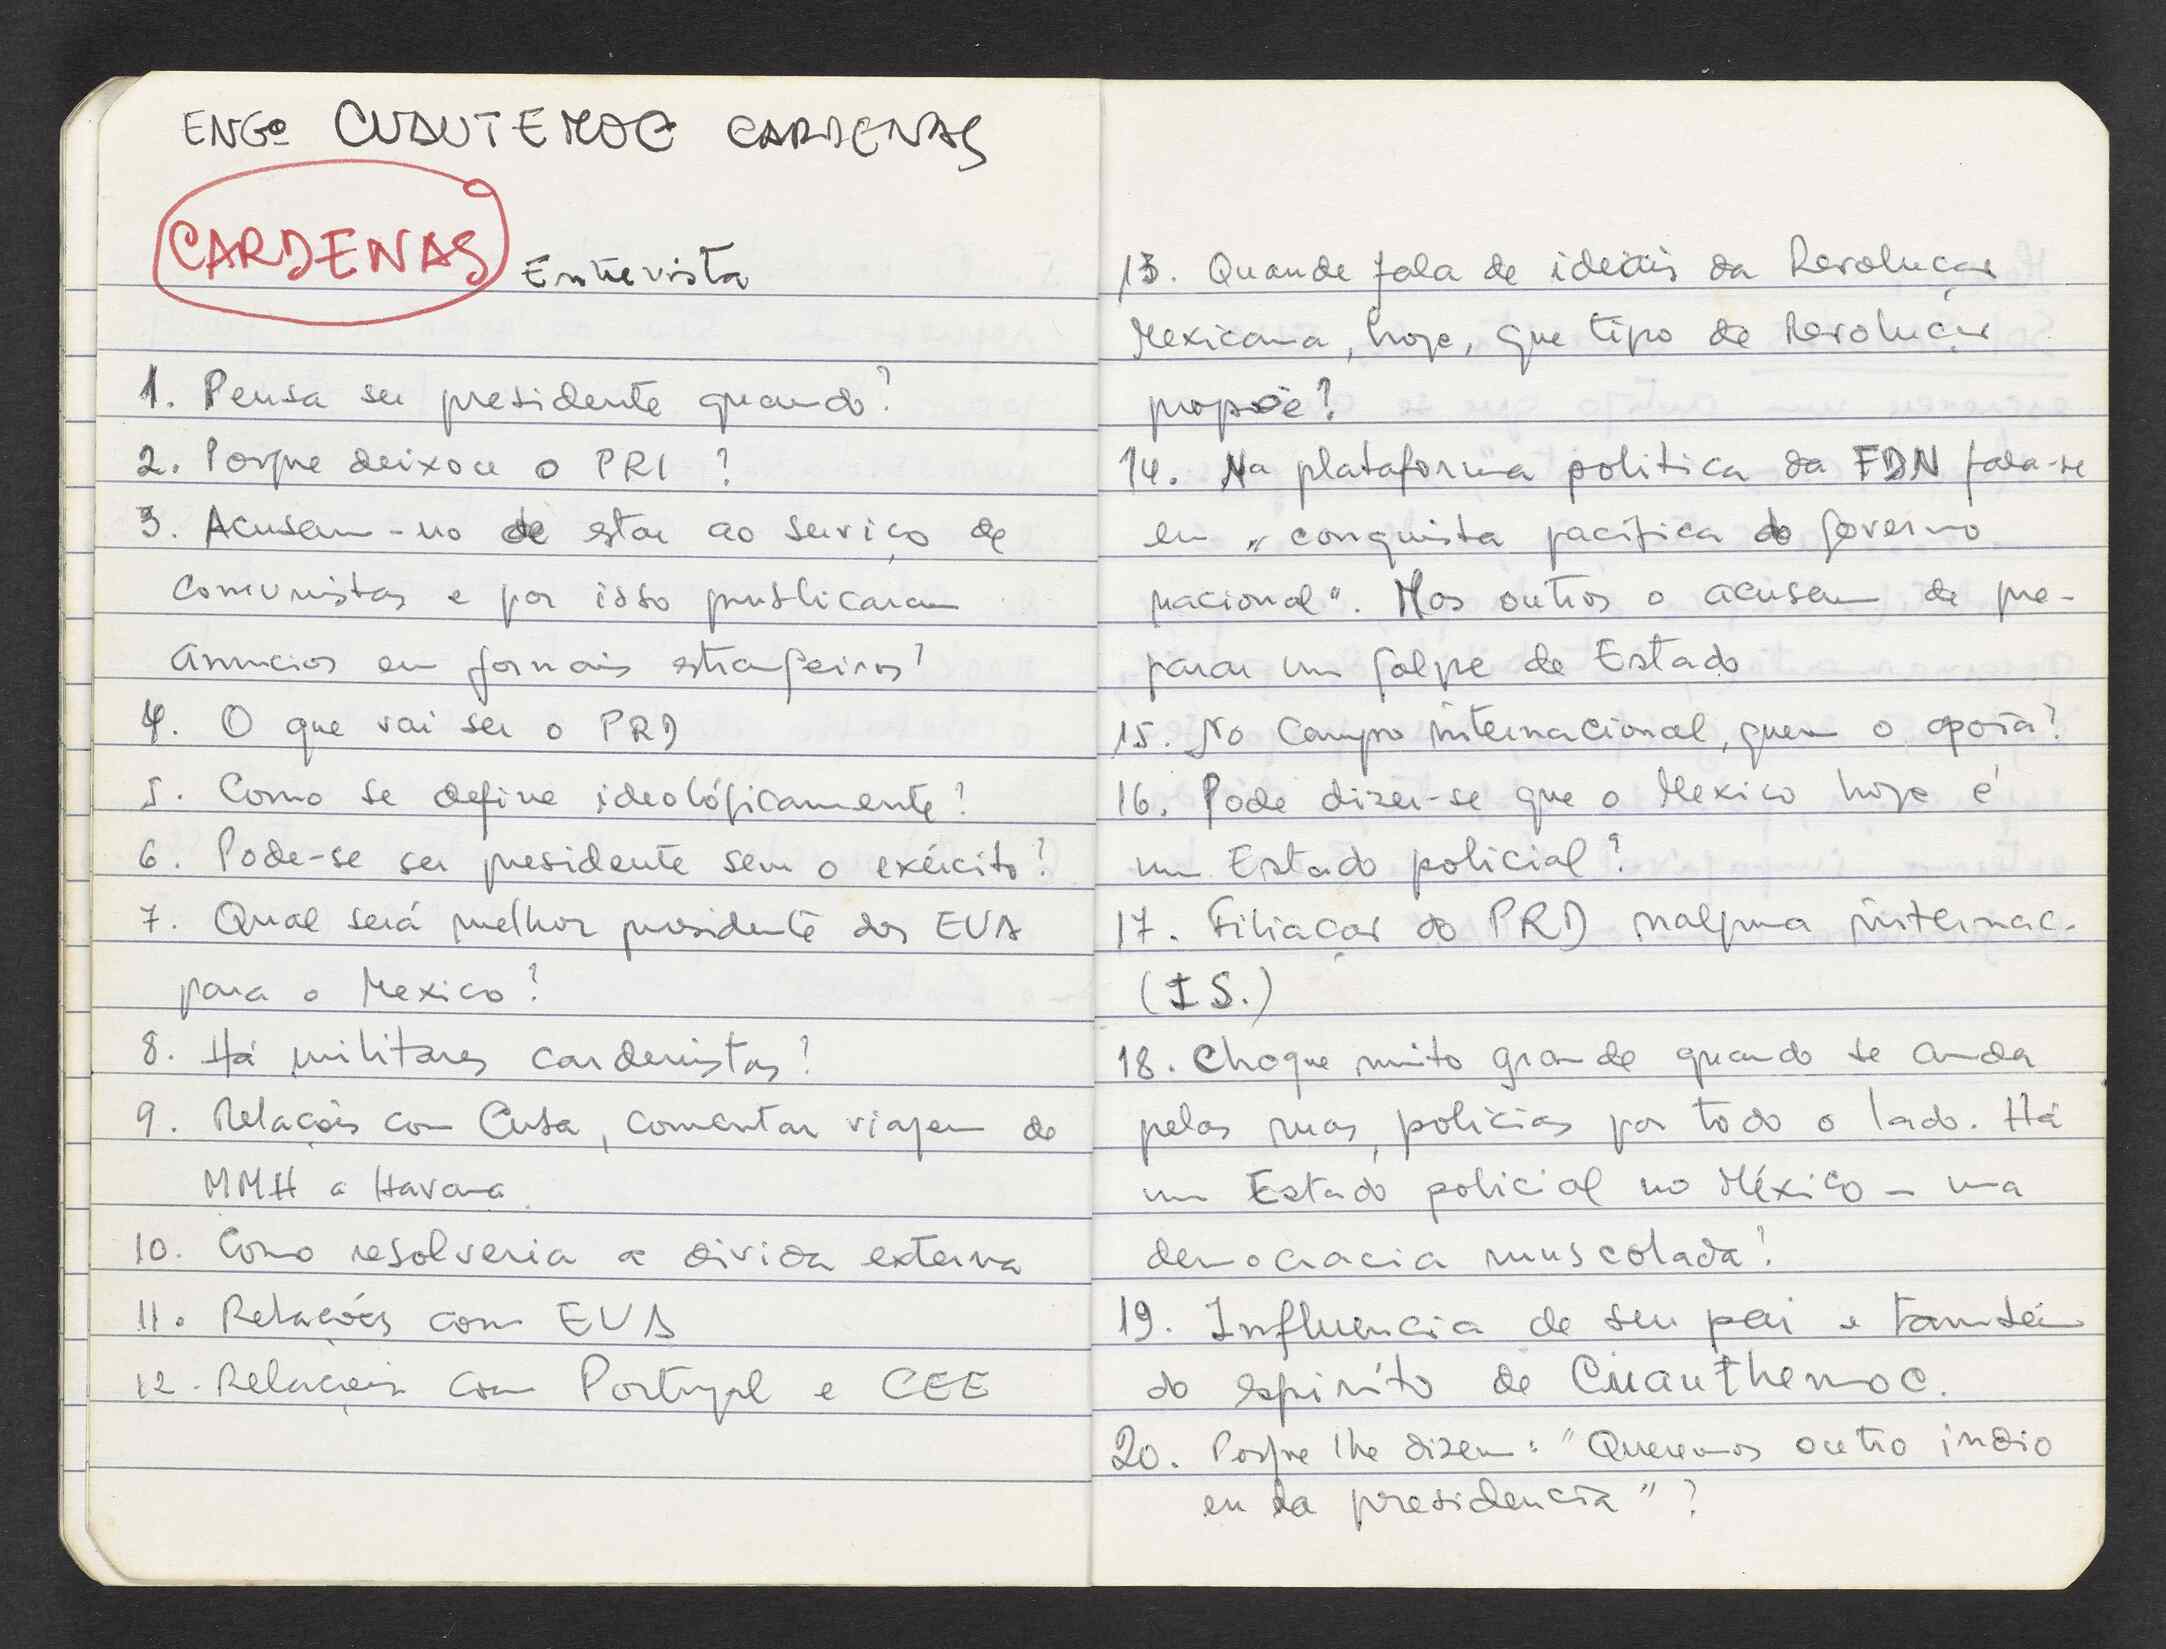 ENGº CUAUTEMOC CARDENAS
CARDENAS Entrevista
1. Pensa ser presidente quando?
2. Porque deixou o PRI ?
3. Acusam-no de estar ao serviço de
comunistas e por isso publicaram
anuncios em jornais estrangeiros?
4. O que vai ser o PRD
5. Como se define ideológicamente?
6. Pode-se ser presidente sem o exército?
7. Qual será melhor presidente dos EUA
para o Mexico?
8. Há militares cardenistas?
9. Relações com Cuba, comentar viagem de
MMH a Havana
10. Como resolveria a divida externa
11. Relações com EUA
12. Relações com Portugal e CEE
13. Quando fala de ideais da Revolução
Mexicana, hoje, que tipo de Revolução
propõe?
14. Na plataforma politica da FDN fala-se
em "conquista pacífica do governo
nacional". Mas outros o acusam de pre-
parar um golpe de Estado
15. No campo internacional, quem o apoia?
16. Pode dizer-se que o Mexico hoje é
um Estado policial?
17. Filiação do PRD nalguma internac.
(I S.)
18. Choque muito grande quando se anda
pelas ruas, policias por todo o lado. Há
um Estado policial no México - uma
democracia muscolada?
19. Influencia de seu pai e também
do espirito de Cuauthemoc.
20. Porque lhe dizem: "Queremos outro indio
en la presidencia" ?